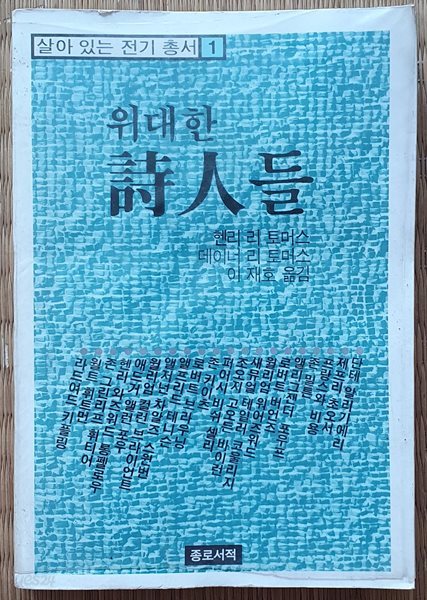 살아 있는 전기 총서 1
위대한
詩人들
헨리 리 토머스
데이너 리 토머스
이 재호 옮김
단테 알리기에리
제프리 초오서
프랑스와 비용
존 밀튼
앨리그잰더 포우프
로버트 버언즈
윌리엄 워어즈워드
새뮤얼 테일러 코울리지
조오지 고오든 바이런
퍼어시 비쉬 셸리
존 키이츠
로버트 브라우닝
앨프리드 테니슨
앨저넌 차알즈 스윈번
윌리엄 브라이언트
애드거 앨런 포우
헨리 와즈워드 롱펠로우
존 그린리프 휘티어
월트 휘트먼
리드여드 키플링
종로서적
yes24